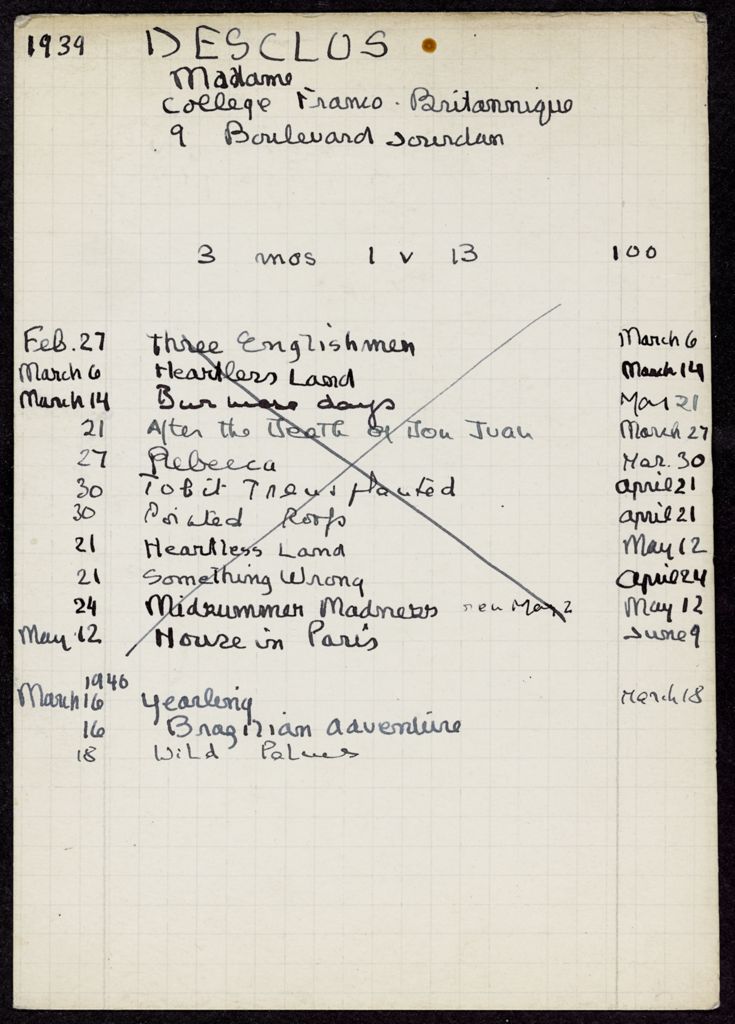 1939 DESCLOS
Madame
College Franco-Britannique
9 Boulevard Jourdan
3 mos 1 v 13 100
Feb. 27 Three Englishmen March 6
March 6 Heartless Land March 14
March 14 Burmese days Mar 21
21 After the Death of Don Juan March 27
27 Rebecca Mar. 30
30 Tobit Transplanted april 21
30 Pointed Roofs april 21
21 Heartless Land May 12
21 Something Wrong april 24
24 Midsummer Madness ren May 2 May 12
May 12 House in Paris June 9
1940
March 16 yearling March 18
16 Brazilian adventure
18 Wild Palms